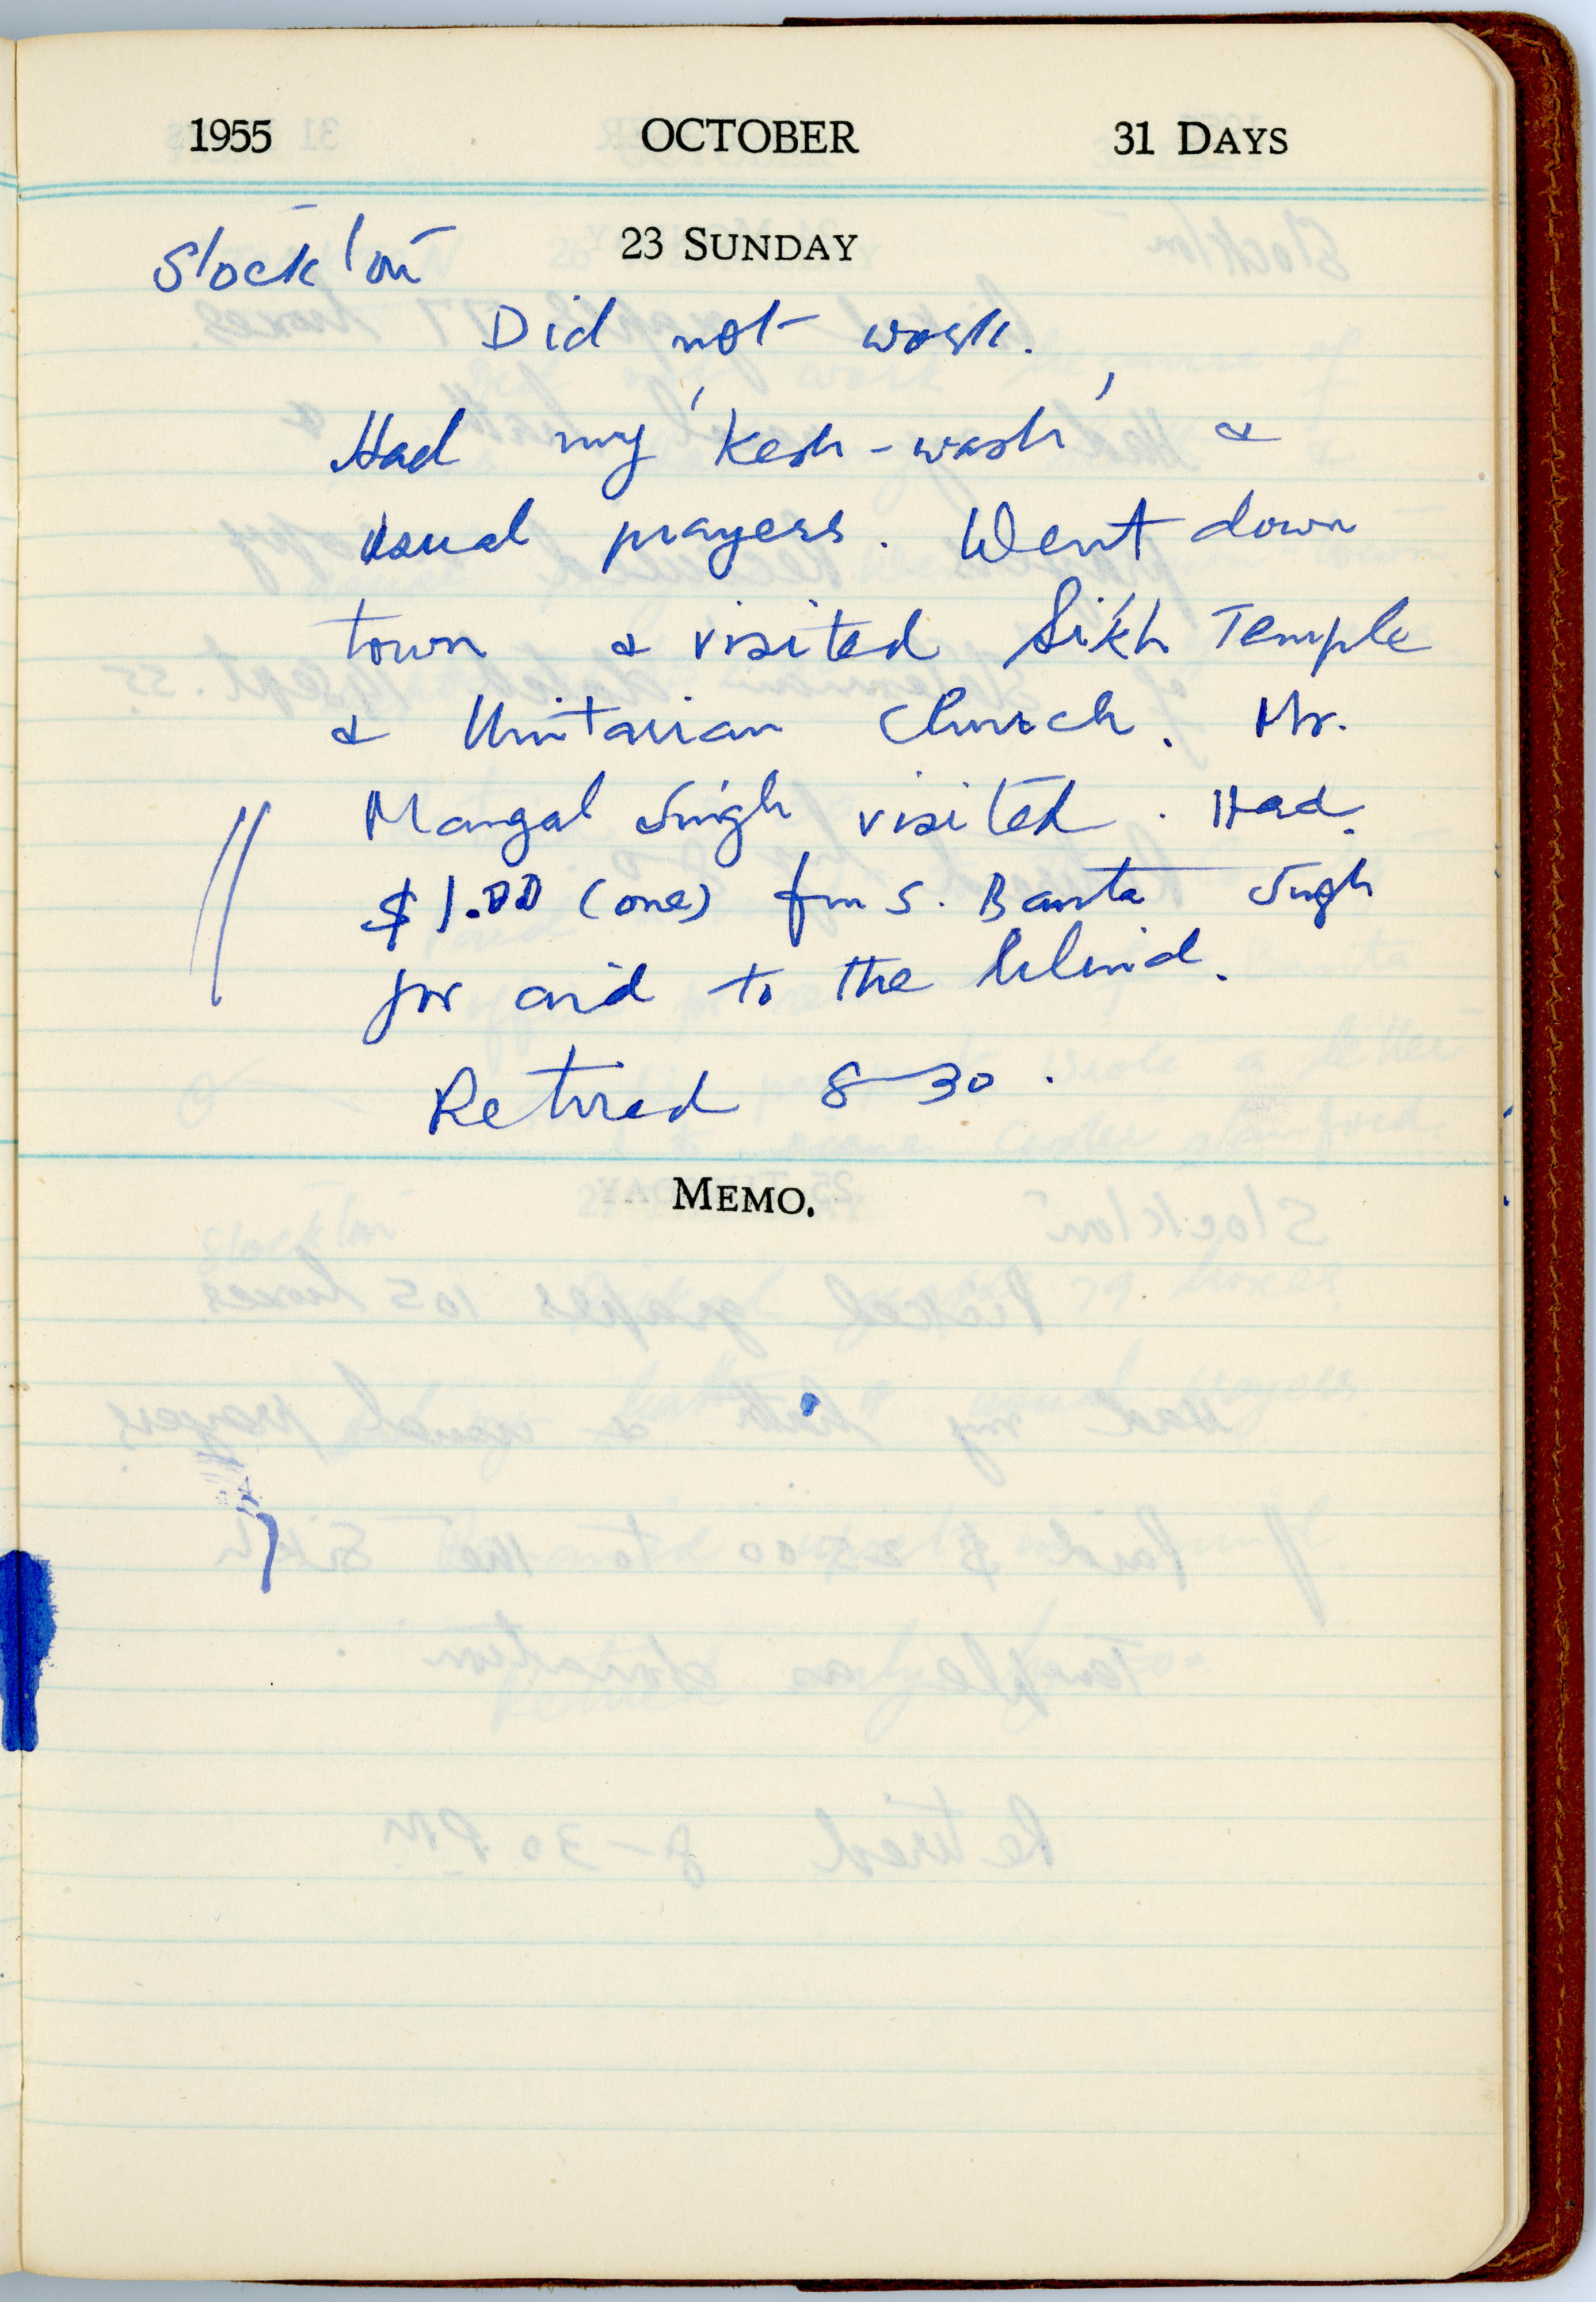 1955 OCTOBER 31 DAYS
23 SUNDAY
Stockton
Did not work.
Had my 'Kesh-wash' &
usual prayers. Went down
town & visited Sikh Temple
& Unitarian Church. Mr.
Mangal Singh visited. Had
$1.00 (one) fm S. Banta Singh
for aid to the blind.
Retired 8-30.
MEMO.